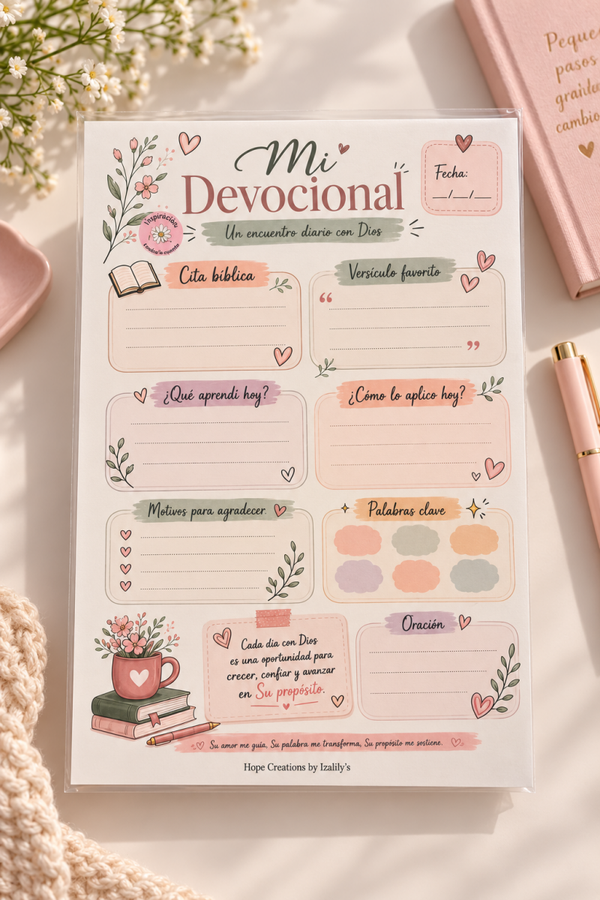 Mi
Devocional
Un encuentro diario con Dios
Fecha:
__/__/__
Inspiración
Cita bíblica
Versículo favorito
“
”
¿Qué aprendi hoy?
¿Cómo lo aplico hoy?
Motivos para agradecer
Palabras clave
Cada día con Dios
es una oportunidad para
crecer, confiar y avanzar
en Su propósito.
Oración
Su amor me guía, Su palabra me transforma, Su propósito me sostiene.
Hope Creations by Izalily's
Peque
pasos
cambio